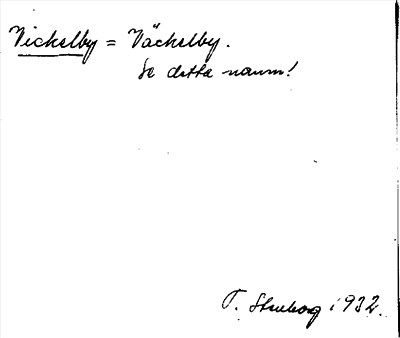 Vickelby = Väckelby.
Se detta namn!
T. 1932.